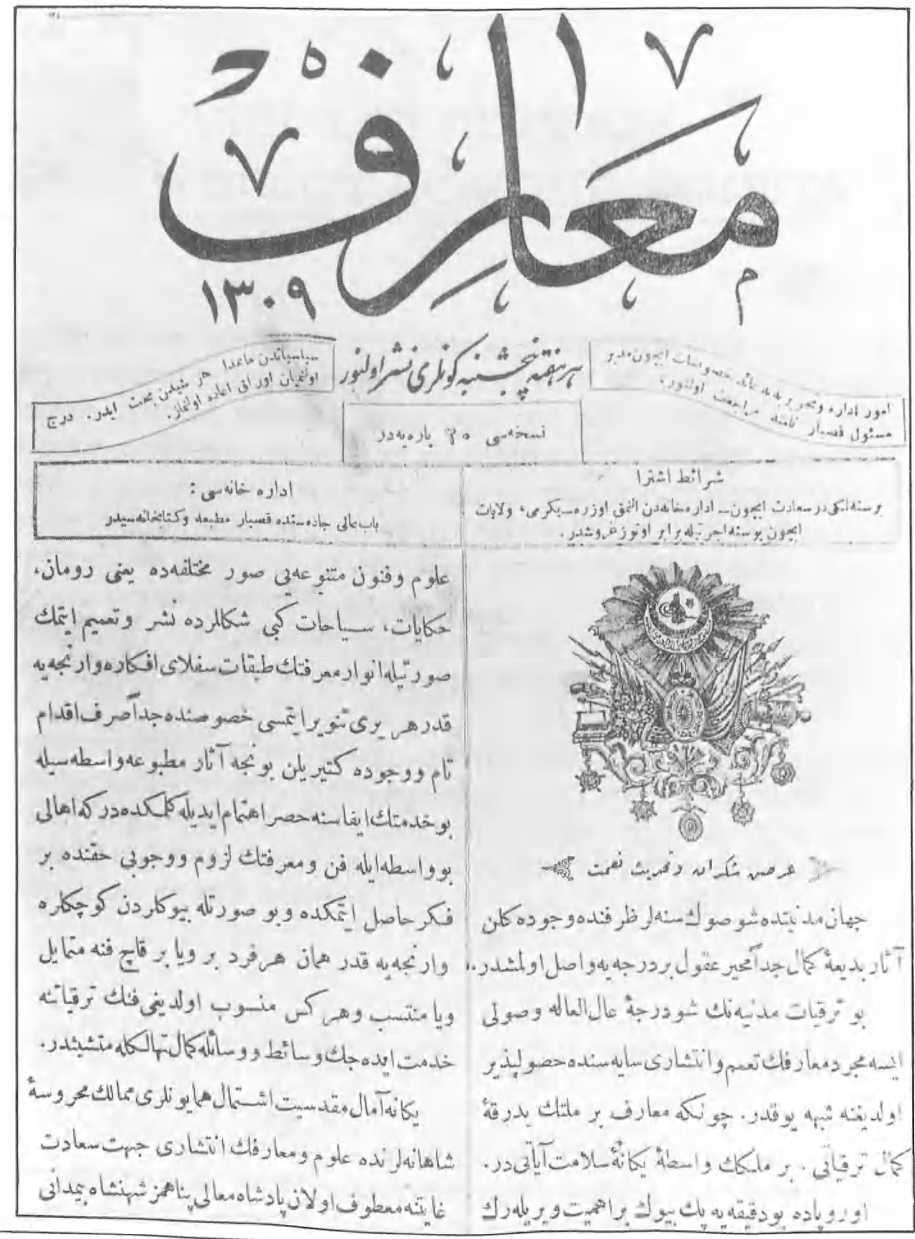 معارف
١٣٠٩
امور اداره و تحریریه‌یه عائد خصوصات ایچون مدیر
مسئول قصبار نامنه مراجعت اولنور،
هر هفته پنجشنبه کونلری نشر اولنور
سیاسیاتدن ماعدا هر شیدن بحث ایدر. درج
اولنمیان اوراق اعاده اولنماز.
نسخه‌سی ٢٠ پاره‌یه‌در
شرائط اشترا
برسنه‌لکی درسعادت ایچون ـ اداره‌خانه‌دن آلنمق اوزره ـ یکرمی، ولایات
ایچون پوسته اجرتیله برابر اوتوز غروشدر.
اداره خانه‌سی :
باب‌عالی جاده‌سنده قصبار مطبعه و کتابخانه‌سیدر
عرض شکران و تحدیث نعمت
جهان مدنیتده شو صوك سنه‌لر ظرفنده وجوده کلن
آثار بدیعهٔ کمال جداً محیر عقول بر درجه‌یه واصل اولمشدر..
بو ترقیات مدنیه‌نك شو درجهٔ عال العاله وصولی
ایسه مجرد معارفك تعمم و انتشاری سایه‌سنده حصولپذیر
اولدیغنه شبهه یوقدر. چونکه معارف بر ملتك بدرقهٔ
کمال ترقیاتی. بر ملكك واسطهٔ یکانهٔ سلامت آیاتی در.
اوروپاده بو دقیقه‌یه پك بیوك بر اهمیت ویریله‌رك
علوم و فنون متنوعه‌یی صور مختلفه‌ده یعنی رومان،
حکایات، سیاحات کبی شکللرده نشر و تعمیم ایتمك
صورتیله انوار معرفتك طبقات سفلای افکاره وارنجه‌یه
قدر هر یری تنویر ایتمسی خصوصنده جداً صرف اقدام
تام و وجوده کتیریلن بونجه آثار مطبوعه واسطه‌سیله
بو خدمتك ایفاسنه حصر اهتمام ایدیله کلمکده در که اهالی
بو واسطه ایله فن و معرفتك لزوم و وجوبی حقنده بر
فکر حاصل ایتمکده و بو صورتله بیوکلردن کوچکلره
وارنجه‌یه قدر همان هر فرد بر ویا بر قاچ فنه متمایل
ویا منتسب و هر کس منسوب اولدیغی فنك ترقیاتنه
خدمت ایده‌جك وسائط و وسائله کمال تهالکله متشبثدر.
یکانه آمال مقدسیت اشتمال همایونلری ممالك محروسهٔ
شاهانه‌لرنده علوم و معارفك انتشاری جهت سعادت
غایتنه معطوف اولان پادشاه معالی پناهمز شهنشاه بیمدانی